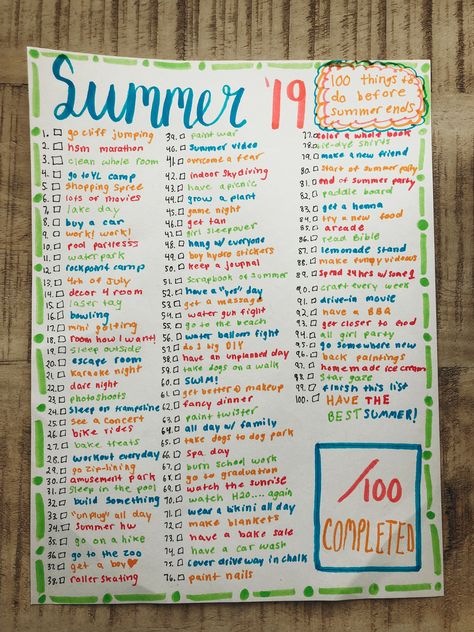 Summer '19
100 things to
do before
summer ends
1. go cliff jumping
2. hsm marathon
3. clean whole room
4. go to YL camp
5. shopping spree
6. lots of movies
7. lake day
8. buy a car
9. work! work!
10. pool partiessss
11. waterpark
12. rockpoint camp
13. 4th of July
14. decor 4 room
15. laser tag
16. bowling
17. mini golfing
18. room how I want!
19. sleep outside
20. escape room
21. karaoke night
22. dare night
23. photoshoots
24. Sleep on trampoline
25. see a concert
26. bike rides
27. bake treats
28. workout everyday
29. go zip-lining
30. amusement park
31. sleep in the pool
32. build something
33. "unplug" all day
34. Summer hw
35. go on a hike
36. go to the zoo
37. get a boy
38. roller skating
39. paint war
40. Summer video
41. overcome a fear
42. indoor skydiving
43. have a picnic
44. grow a plant
45. game night
46. get tan
47. girl sleepover
48. hang w/ everyone
49. buy hydro stickers
50. keep a journal
51. scrapbook of summer
52. have a "yes" day
53. get a massage
54. water gun fight
55. go to the beach
56. water balloon fight
57. do 3 big DIY
58. have an unplanned day
59. take dogs on a walk
60. SWIM!
61. get better @ makeup
62. fancy dinner
63. paint twister
64. all day w/ family
65. take dogs to dog park
66. Spa day
67. burn school work
68. go to graduation
69. watch the sunrise
70. watch H2O.... again
71. wear a bikini all day
72. make blankets
73. have a bake sale
74. have a car wash
75. cover driveway in chalk
76. paint nails
77. color a whole book
78. tie-dye shirts
79. make a new friend
80. start of summer party
81. end of summer party
82. paddle board
83. get a henna
84. try a new food
85. arcade
86. read Bible
87. lemonade stand
88. make funny videos
89. spend 24hrs w/ some1
90. craft every week
91. drive-in movie
92. have a BBQ
93. get closer to God
94. all girl party
95. go somewhere new
96. back paintings
97. homemade ice cream
98. star gaze
99. finish this list
100. HAVE THE
BEST SUMMER!
/100
COMPLETED